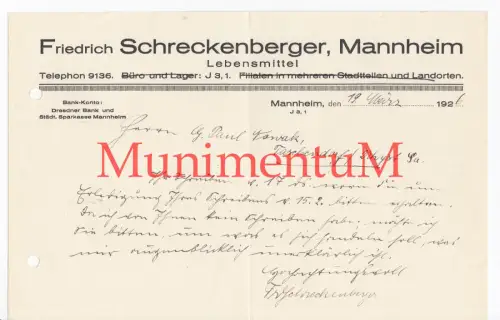 Friedrich Schreckenberger, Mannheim
Lebensmittel
Telephon 9136. Büro und Lager: J 3, 1. Filialen in mehreren Stadtteilen und Landorten.
Bank-Konto:
Dresdner Bank und
Städt. Sparkasse Mannheim
Mannheim, den 19. März 192
J 3, 1
Herrn G. Paul Nowak,
MunimentuM
Schreiben v. 17. ds. worin Sie um
Erledigung Ihres Schreibens v. 15.2. bitten erhalten.
Da ich von Ihnen kein Schreiben habe, möchte ich
Sie bitten, um was es sich handeln soll, was
mir augenblicklich unerklärlich ist.
Hochachtungsvoll
Schreckenberger